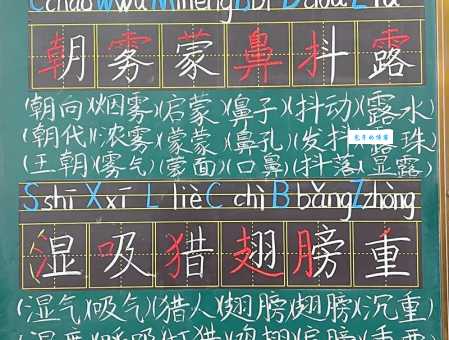 C cháo W wù M méng B bí D dǒu L lù
朝雾蒙鼻抖露
(朝向)(烟雾)(启蒙)(鼻子)(抖动)(露水)
(朝代)(浓雾)(蒙蒙)(鼻孔)(发抖)(露珠)
(王朝)(雾气)(蒙面)(口鼻)(抖落)(显露)
S shī X xī L liè C chì B bǎng Z zhòng
湿吸猎翅膀重
(湿气)(吸气)(猎人)(翅膀)(翅膀)(沉重)